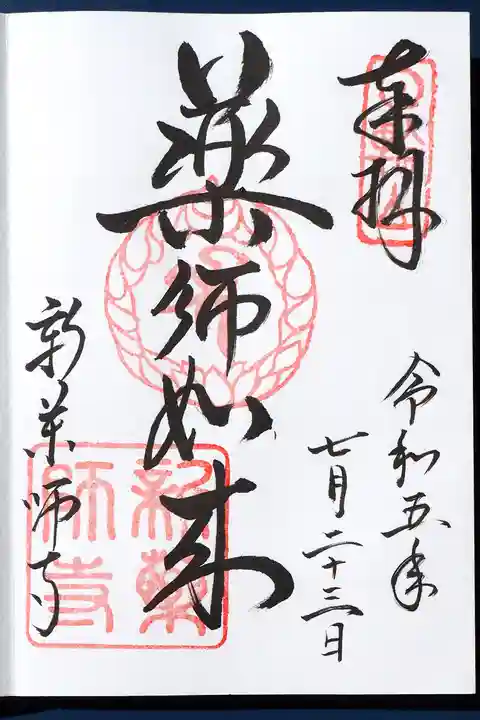 奉拝
令和五年
七月二十三日
薬師如来
新薬師寺
新薬
師寺